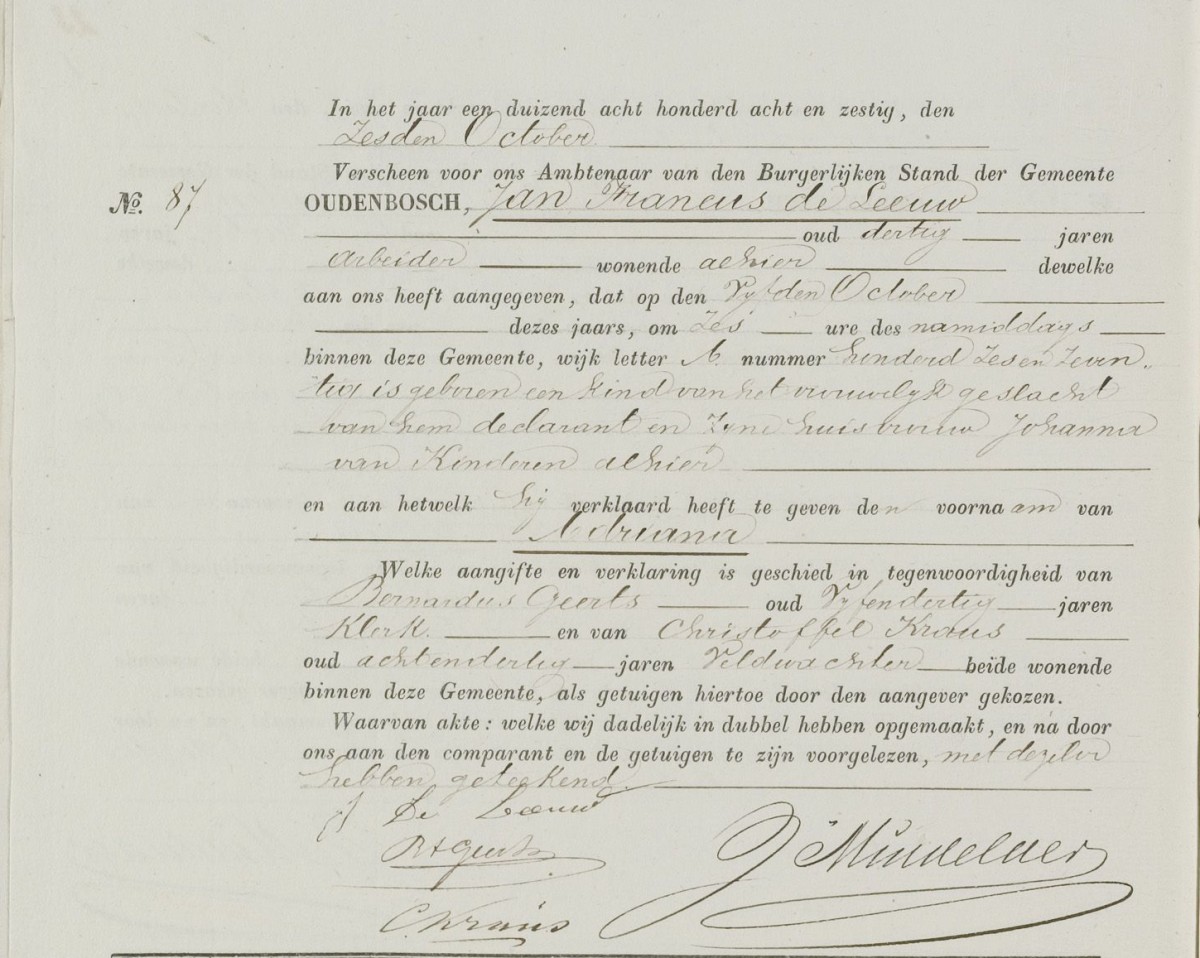 In het jaar een duizend acht honderd acht en zestig, den
Zesden October
Verscheen voor ons Ambtenaar van den Burgerlijken Stand der Gemeente
No. 87 OUDENBOSCH, Jan Francus de Leeuw
oud dertig jaren
Arbeider wonende alhier dewelke
aan ons heeft aangegeven, dat op den Vyfden October
dezes jaars, om Zes ure des namiddags
binnen deze Gemeente, wijk letter A. nummer honderd Zes en Zeven„
tig is geboren een kind van het vrouwelyk geslacht
van hem declarant en Zyne huisvrouw Johanna
van Kinderen alhier
en aan hetwelk hij verklaard heeft te geven den voornaam van
Adriana
Welke aangifte en verklaring is geschied in tegenwoordigheid van
Bernardus Geerts oud Vyfendertig jaren
Klerk. en van Christoffel Kraus
oud achtendertig jaren Veldwachter beide wonende
binnen deze Gemeente, als getuigen hiertoe door den aangever gekozen.
Waarvan akte: welke wij dadelijk in dubbel hebben opgemaakt, en na door
ons aan den comparant en de getuigen te zijn voorgelezen, met dezelve
hebben geteekend.
De Leeuw
Geerts
C Kraus